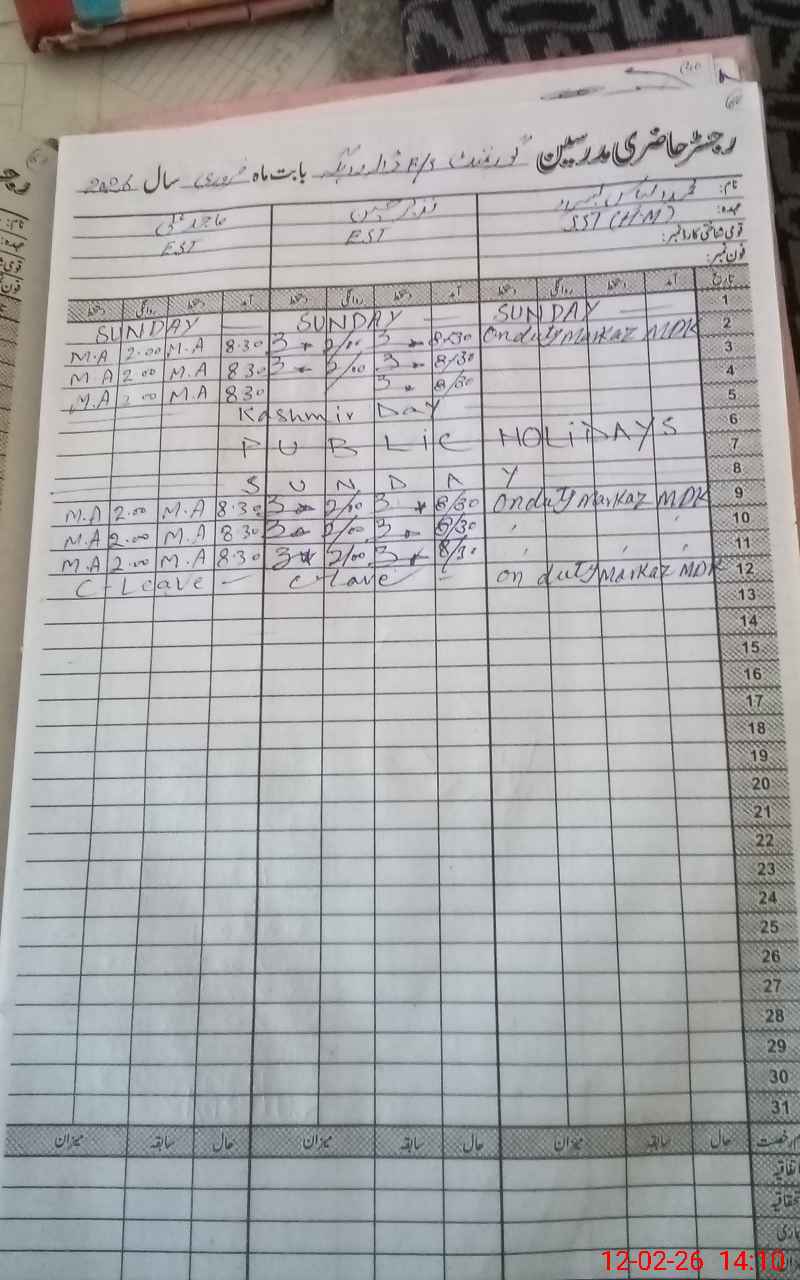 رجسٹر حاضری مدرسین گورنمنٹ E/S بابت ماہ فروری سال 2026
نام:
عہدہ: SST (H.M) EST EST
قومی شناختی کارڈ نمبر:
فون نمبر:
تاریخ آمد دستخط روانگی دستخط آمد دستخط روانگی دستخط آمد دستخط روانگی دستخط
1 SUNDAY SUNDAY SUNDAY
2 On duty Markaz MDK 8/30 3 2/00 3 8.30 M.A 2.00 M.A
3 8/30 3 2/00 3 8.30 M.A 2.00 M.A
4 8/30 3 8.30 M.A 2.00 M.A
5 Kashmir Day
6 PUBLIC HOLIDAYS
7
8 SUNDAY
9 On duty Markaz MDK 8/30 3 2/00 3 8.30 M.A 2.00 M.A
10 " " 8/30 3 2/00 3 8.30 M.A 2.00 M.A
11 " " " 8/30 3 2/00 3 8.30 M.A 2.00 M.A
12 on duty Markaz MDK C-lave C-Leave
13
14
15
16
17
18
19
20
21
22
23
24
25
26
27
28
29
30
31
حال سابقہ میزان حال سابقہ میزان حال سابقہ میزان
12-02-26 14:10